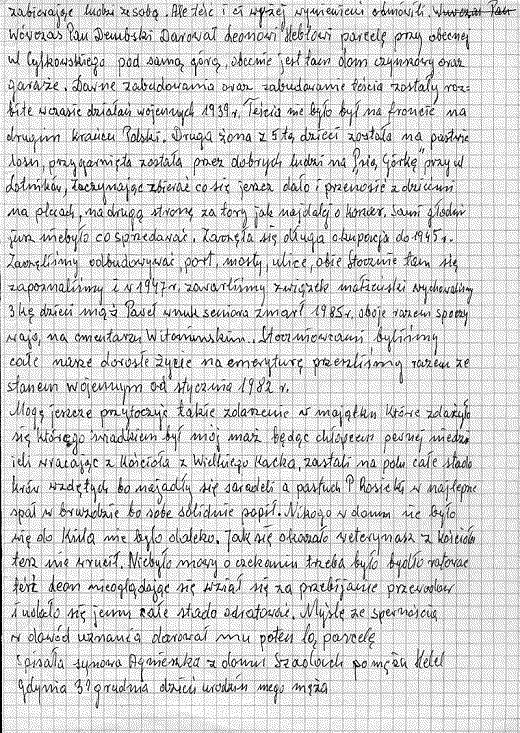 zabierając ludzi ze sobą. Ale teść i ci wyżej wymienieni odmówili.
Wówczas Pan Dembski Darował Leonowi Heblowi parcelę przy obecnej
ul Cylkowskiego pod samą górą, obecnie jest tam dom czynszowy oraz
garaże. Dawne zabudowania oraz zabudowanie teścia zostały roz-
bite wczasie działań wojennych 1939 r. Teścia nie było był na froncie na
drugim krańcu Polski. Druga żona z 5tą dzieci została na pastwę
losu, przygarnięta została przez dobrych ludzi na "Pnią Górkę" przy ul
Lotników, zaczynając zbierać co się jeszcz dało i przenosić z dziećmi
na plecach, na drugą stronę za tory jak najdalej o koszar. Sami głodni
już niebyło co sprzedawać. Zaczęła się długa okupacja do 1945 r.
Zaczęliśmy odbudowywać, port, mosty, ulice, obie Stocznie tam się
zapoznaliśmy i w 1947 r, zawarliśmy związek małżeński wychowaliśmy
3kę dzieci mąż Paweł wnuk seniora zmarł 1985 r. oboje razem spoczy
wają, na cmentarzu Witomińskim. Stoczniowcami byliśmy
całe nasze dorosłe życie na emeryturę przeszliśmy razem ze
stanem wojennym od stycznia 1982 r.
Mogę jeszcze przytoczyć takie zdarzenie w majątku które zdażyło
się którego świadkiem był mój mąż będąc chłopcem pewnej niedzie
ieli wracając z Kościoła z Wielkiego Kacka, zastali na polu całe stado
krów wzdętych bo najadły się saradeli a pastuch P Rosicki w najlepsze
spał w bruździe bo sobie solidnie popił. Nikogo w domu nie było
się do Króla nie było daleko. Jak się okazało weterynarz z kościoła
też nie wrócił. Niebyło mowy o czekaniu trzeba było bydło ratować
teść Leon nieoglądając się wziął się za przebijanie przewodów
i udało się jemu całe stado odratować. Myślę ze spewnością
w dowód uznania darował mu potem tą parcelę
Spisała synowa Agnieszka z domu Szadłoch po mężu Hebel
Gdynia 31 grudnia dzień urodzin mego męża